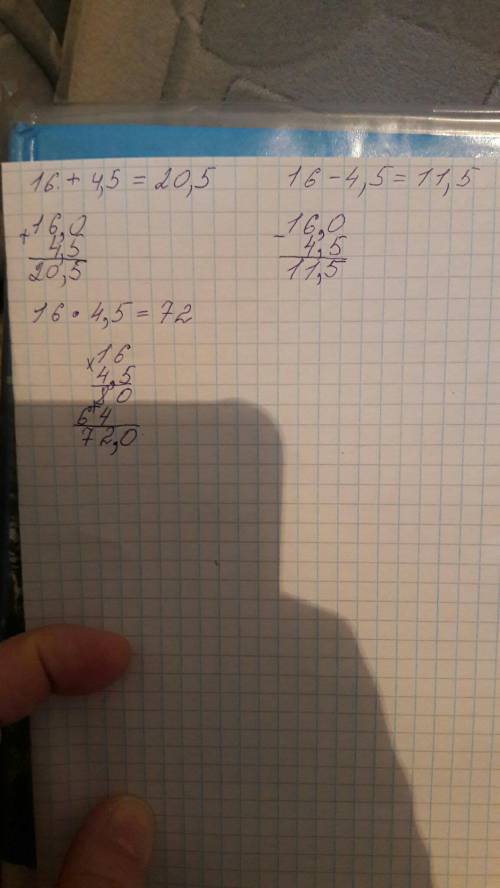 16 + 4,5 = 20,5
+16,0
4,5
20,5
16 - 4,5 = 11,5
-16,0
4,5
11,5
16 · 4,5 = 72
×16
4,5
+80
64
72,0